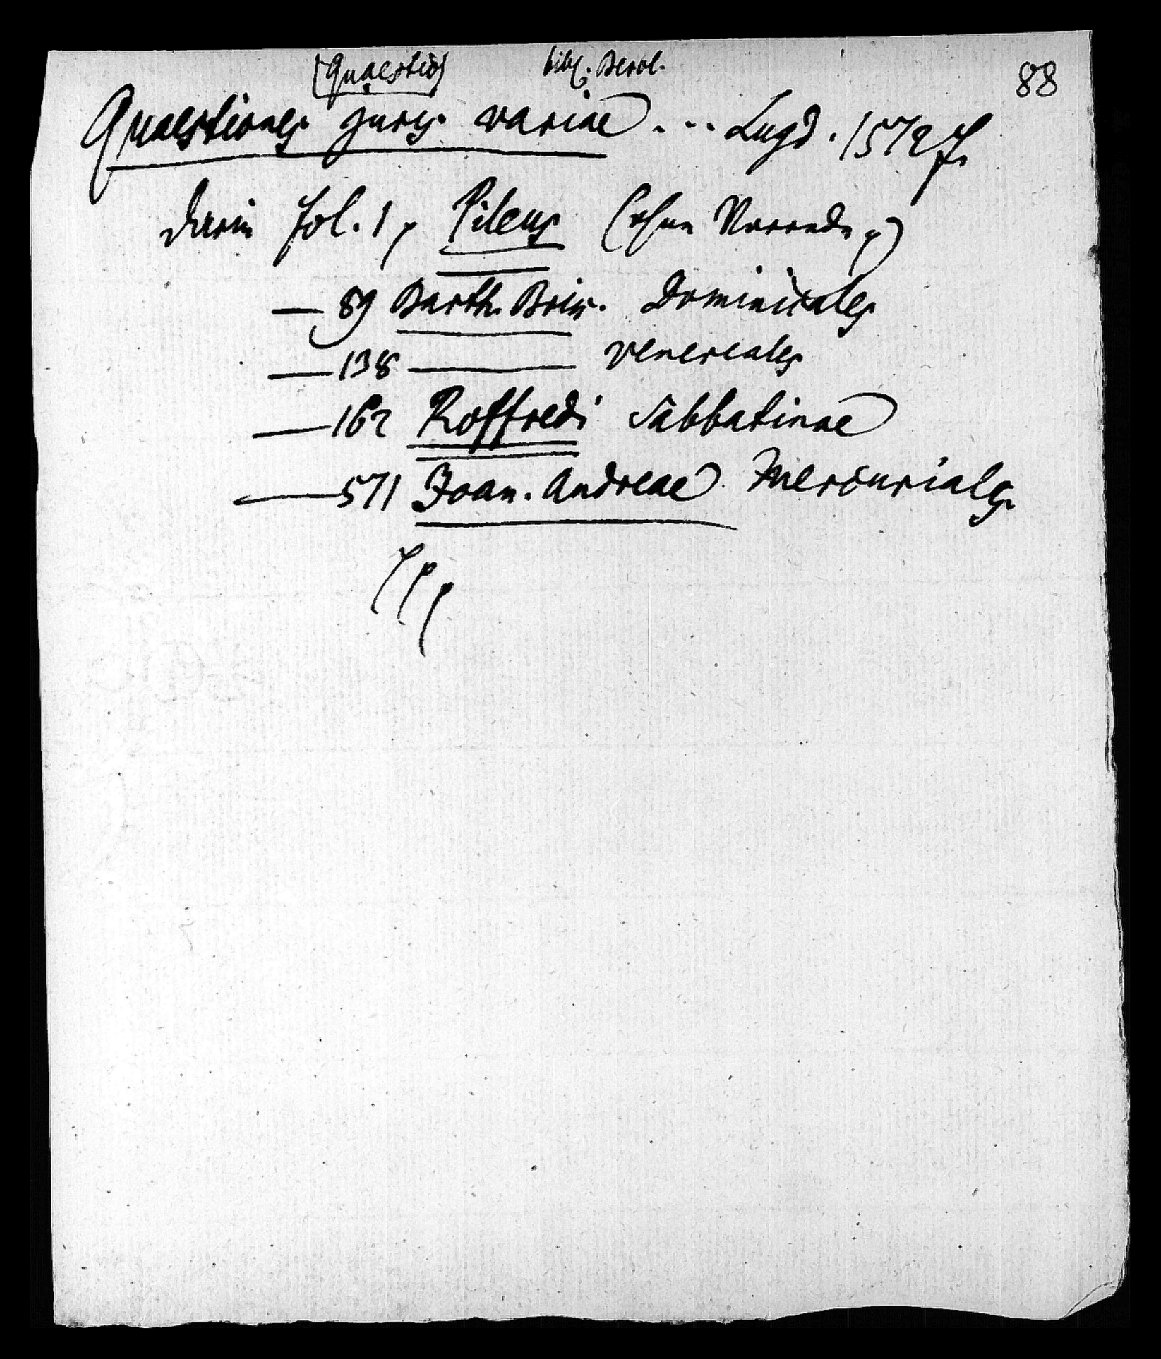 [Quaestio] bibl. Berol. 88
Quaestiones juris variae ... Lugd. 1572 f.
darin fol. 1, Pileus (ohne Vorrede)
— 89 Barth. Brix. Dominicales
— 138 ——— venereales
— 162 Roffredi Sabbatinae
— 571 Joan. Andreae Mercuriales